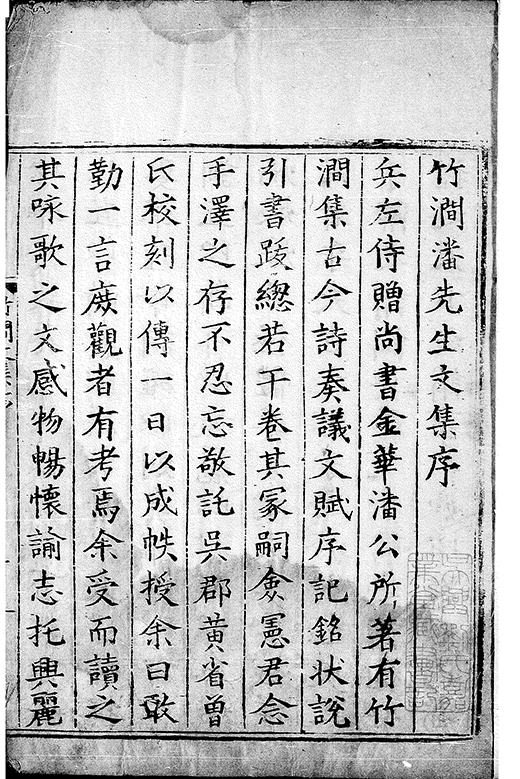 竹澗潘先生文集序
兵左侍贈尚書金華潘公所著有竹
澗集古今詩奏議文賦序記銘狀說
引書跋總若干卷其冢嗣僉憲君念
手澤之存不忍忘敬託吳郡黃省曾
氏校刻以傳一日以成帙授余曰敢
勤一言庻觀者有考焉余受而讀之
其咏歌之文感物暢懷諭志托興麗